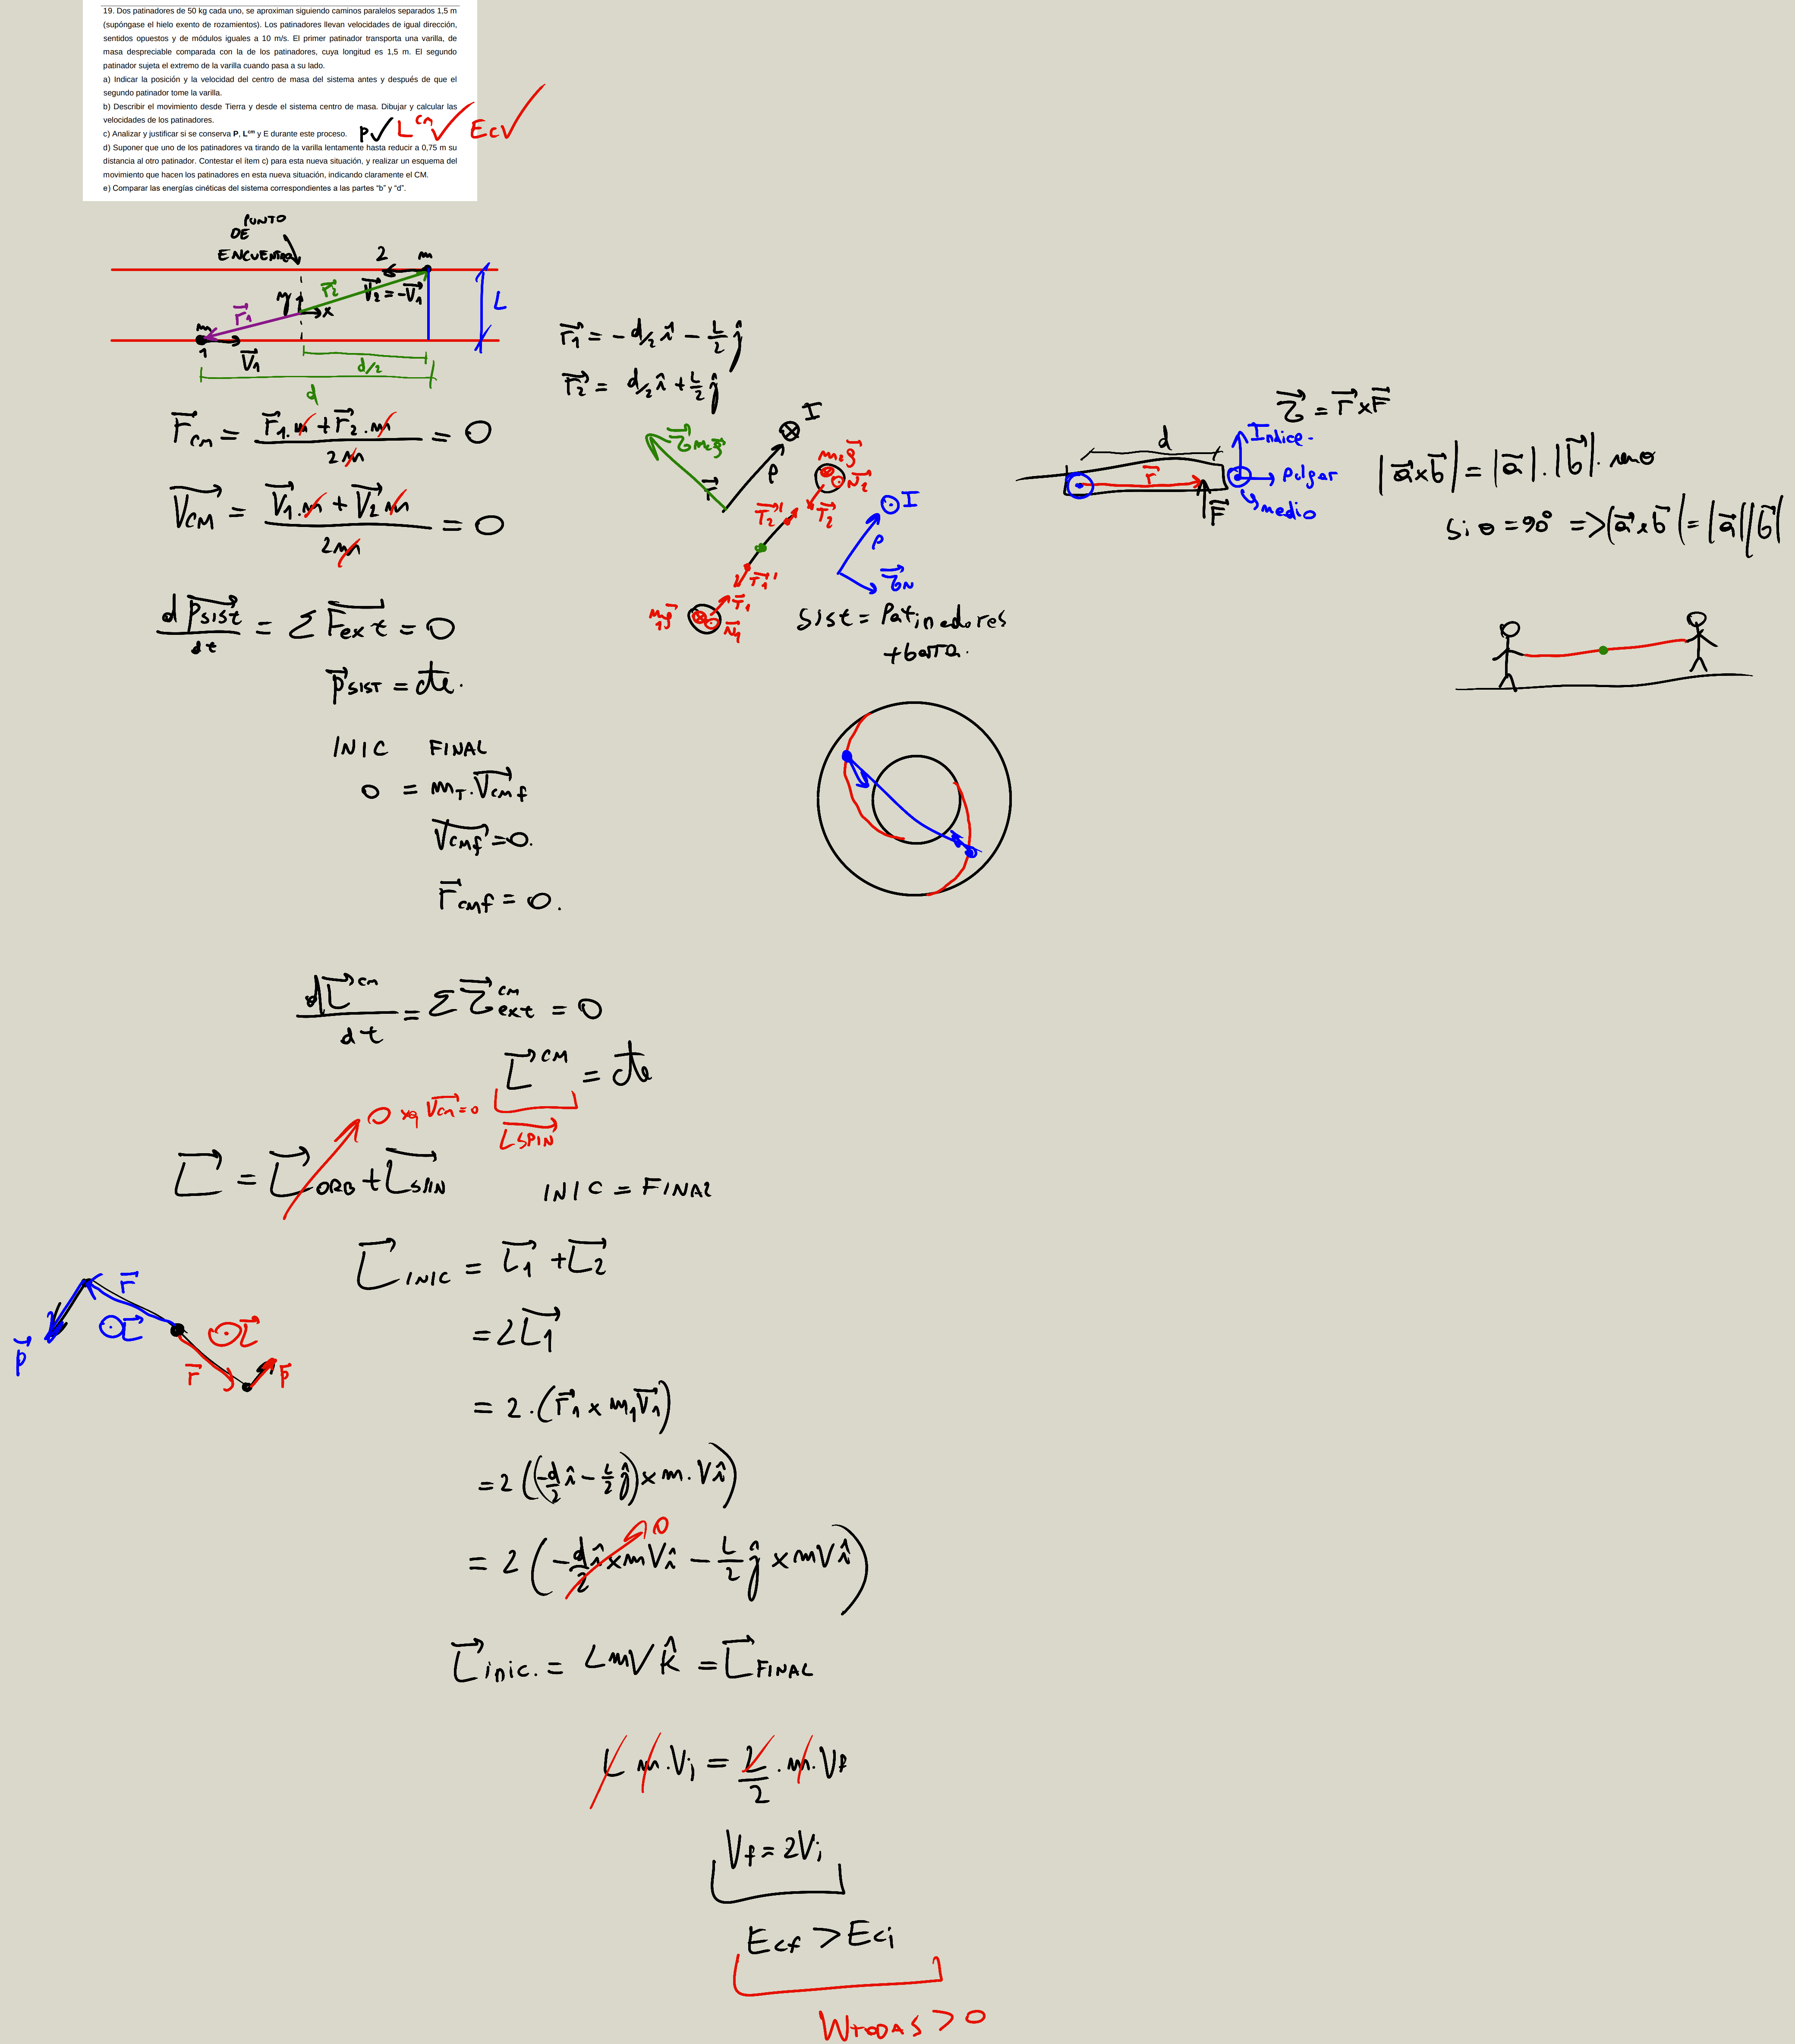 19. Dos patinadores de 50 kg cada uno, se aproximan siguiendo caminos paralelos separados 1,5 m
(supóngase el hielo exento de rozamientos). Los patinadores llevan velocidades de igual dirección,
sentidos opuestos y de módulos iguales a 10 m/s. El primer patinador transporta una varilla, de
masa despreciable comparada con la de los patinadores, cuya longitud es 1,5 m. El segundo
patinador sujeta el extremo de la varilla cuando pasa a su lado.
a) Indicar la posición y la velocidad del centro de masa del sistema antes y después de que el
segundo patinador tome la varilla.
b) Describir el movimiento desde Tierra y desde el sistema centro de masa. Dibujar y calcular las
velocidades de los patinadores.
c) Analizar y justificar si se conserva P, Lᶜᵐ y E durante este proceso.
P✓ L^cm ✓ Ec✓
d) Suponer que uno de los patinadores va tirando de la varilla lentamente hasta reducir a 0,75 m su
distancia al otro patinador. Contestar el ítem c) para esta nueva situación, y realizar un esquema del
movimiento que hacen los patinadores en esta nueva situación, indicando claramente el CM.
e) Comparar las energías cinéticas del sistema correspondientes a las partes “b” y “d”.
PUNTO
DE
ENCUENTRO
2 m
V⃗2 = -V⃗1
r⃗2
y
x
r⃗1
m
1
V⃗1
L
d/2
d
r⃗1 = - d/2 î - L/2 ĵ
r⃗2 = d/2 î + L/2 ĵ
r⃗cm = (r⃗1.m + r⃗2.m) / 2m = 0
V⃗cm = (V⃗1.m + V⃗2 m) / 2m = 0
dp⃗sist / dt = Σ F⃗ext = 0
p⃗SIST = cte.
INIC FINAL
0 = mT.V⃗cmf
V⃗cmf = 0.
r⃗cmf = 0.
⊗ I
P
τ⃗m2g⃗
r⃗
m2g⃗
N⃗2
T⃗2' T⃗2
T⃗1'
T⃗1
m1g⃗
N⃗1
⊙ I
P
τ⃗N
Sist = Patinadores
+ barra.
τ⃗ = r⃗ x F⃗
d
r⃗
F⃗
Indice.
Pulgar
medio
|a⃗ x b⃗| = |a⃗| . |b⃗| . sen θ
Si θ = 90° => |a⃗ x b⃗| = |a⃗| |b⃗|
dL⃗^cm / dt = Σ τ⃗^cm ext = 0
L⃗^CM = cte
L⃗SPIN
0 xq V⃗cm = 0
L⃗ = L⃗ORB + L⃗SPIN
INIC = FINAL
L⃗INIC = L⃗1 + L⃗2
= 2L⃗1
= 2 . (r⃗1 x m1V⃗1)
= 2 ((-d/2 î - L/2 ĵ) x m . V î)
= 2 (-d/2 î x mV î - L/2 ĵ x mV î)
0
L⃗inic. = LmV k̂ = L⃗FINAL
r⃗
⊙L⃗
p⃗
⊙L⃗
r⃗
p⃗
L m . Vi = L/2 . m . Vf
Vf = 2Vi
Ecf > Eci
WTODAS > 0